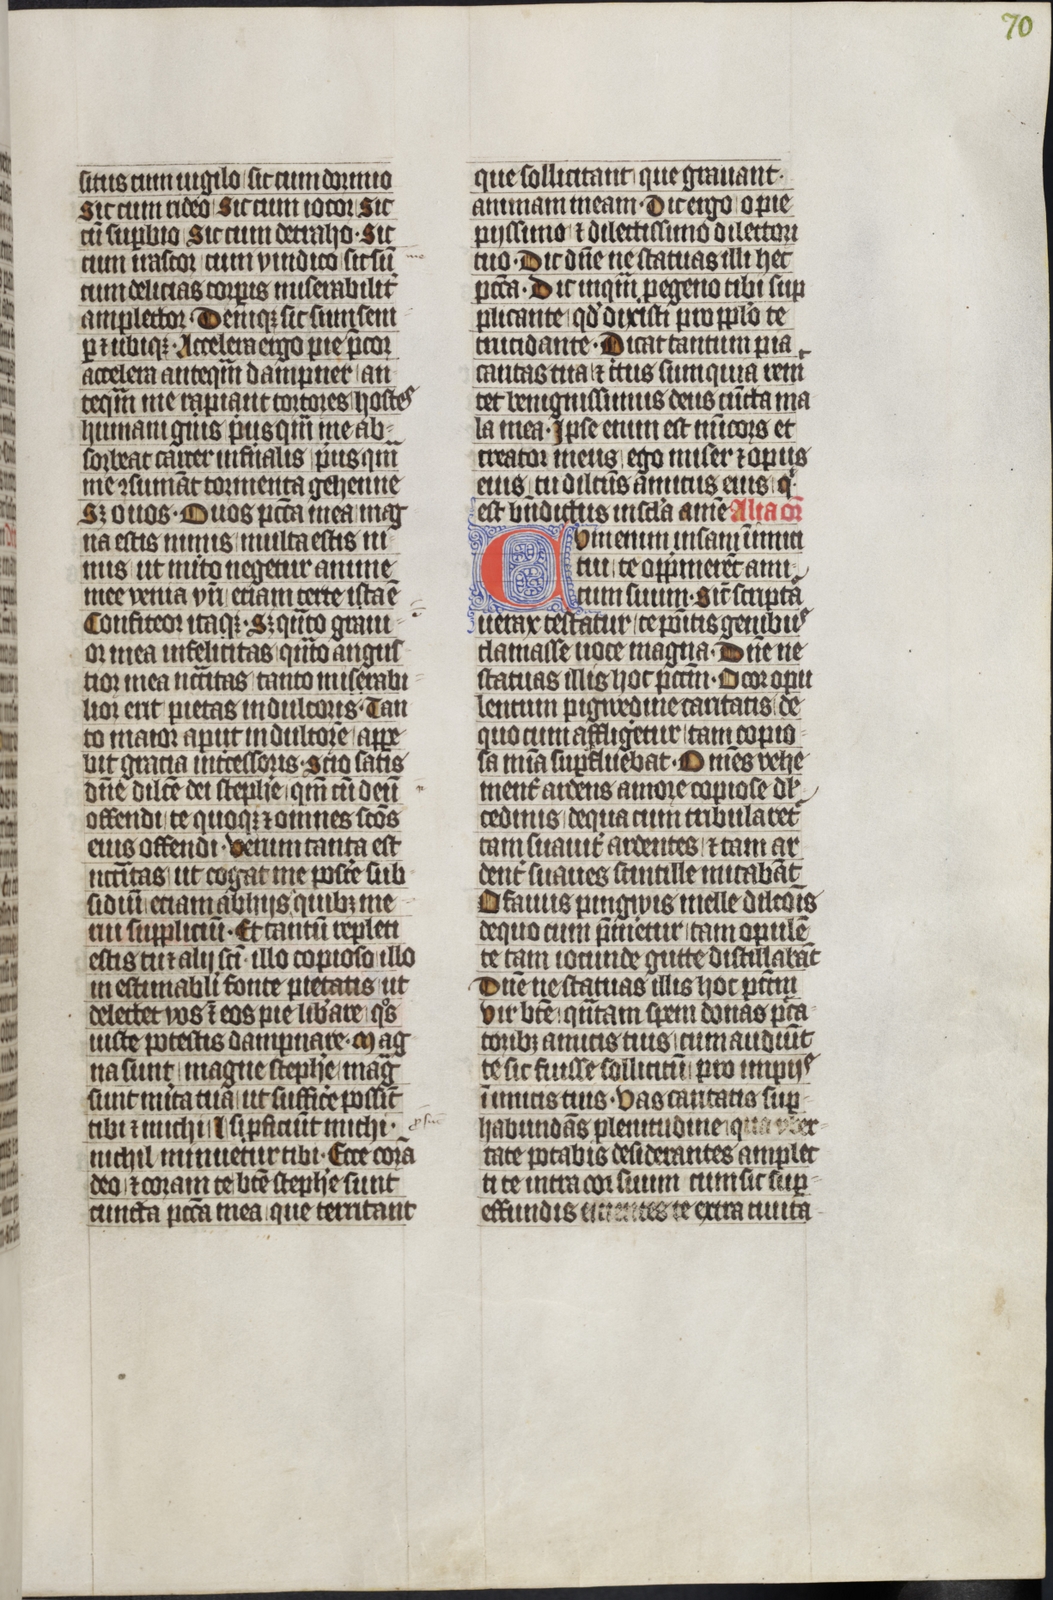 70
situs cum uigilo sic cum dormio
Sic cum rideo Sic cum iocor Sic
cū supbio Sic cum detraho· Sic
cum irascor cum vindico sic sū
cum delicias corpis miserabilit̄
amplector· Deniqꝫ sic sum sem
ꝑ ⁊ ubiqꝫ· Accelera ergo pie p̄cor
accelera anteqm̄ dampner an
teqm̄ me rapiant tortores hostes
humani gn̄is p̄usqm̄ me ab-
sorbeat carcer infn̄alis p̄usqm̄
me ꝯsumāt tormenta gehenne
Sꝫ o uos· Duos pctā mea mag
na estis nimis multa estis ni
mis ut mīto negetur anime
mee venia vn̄ etiam certe ista ē
Confiteor itaqꝫ· Sꝫ qn̄to graui
or mea infelicitas qn̄to angus
tior mea nēcitas tanto miserabi
lior erit pietas indultoris· Tan
to maior aput indultorē appe
bit gracia intcessoris· Scio satis
dn̄e dilcē dei steph̄e qm̄ cū deū
offendi te quoqꝫ ⁊ omnes scōs
eius offendi· Verum tanta est
nēcitas ut cogat me posce sub
sidiū etiam ab hijs quibꝫ me
rui suppliciū· Et tantū repleti
estis tu ⁊ alij scī· illo copioso illo
inestimabli fonte pietatis ut
delectet vos ⁊ eos pie libare qͦs
iuste potestis dampnare· Mag
na sunt magne steph̄e maḡ
sunt mīta tua ut suffice possūt
tibi ⁊ michi· Si pficiūt michi·
nichil minuetur tibi· Ecce corā
deo ⁊ coram te btē steph̄e sunt
cuncta pctā mea que territant
que sollicitant que grauant·
animam meam· Dic ergo o pie
pijssimo ⁊ dilectissimo dilectori
tuo· Dic dn̄e ne statuas illi hec
pctā· Dic inqm̄ pegeno tibi sup
plicante qd̄ dixisti pro pplo te
trucidante· Dicat tantum pia
caritas tua ⁊ c̄tus sum quia remit
tet benignissimus deus cūcta ma
la mea· Ipse enim est mīcors et
creator meus ego miser ⁊ opus
eius tu dilctus amicus eius q̄
est bn̄dictus in scla amē Alia or̄
Cum enim insani inimici
tui te oppimerēt ami-
cum suum· Sic̄ scripta
uerax testatur te pōitis genibus
clamasse uoce magna· Dn̄e ne
statuas illis hoc pctm̄· O cor opu
lentum pigwedine caritatis de
quo cum affligetur tam copio
sa mīa supfluebat· O mēs vehe
ment̄ ardens amore copiose dl̄
cedinis de qua cum tribularet̄
tam suauit̄ ardentes ⁊ tam ar
dent̄ suaues scintille micabāt
O fauus pingwis melle dilcōis
de quo cum p̄mietur tam opulē
te tam iocunde gutte distillabāt
Dn̄e ne statuas illis hoc pctm̄
Vir btē qn̄tam spem donas pctā
toribꝫ amicis tuis cum audiūt
te sic fuisse sollicitū pro impijs
inimicis tuis· Vas caritatis sup
habundās plenitudine qua vber
tate potabis desiderantes amplec
ti te intra cor suum cum sic sup
effundis te extra ciuita